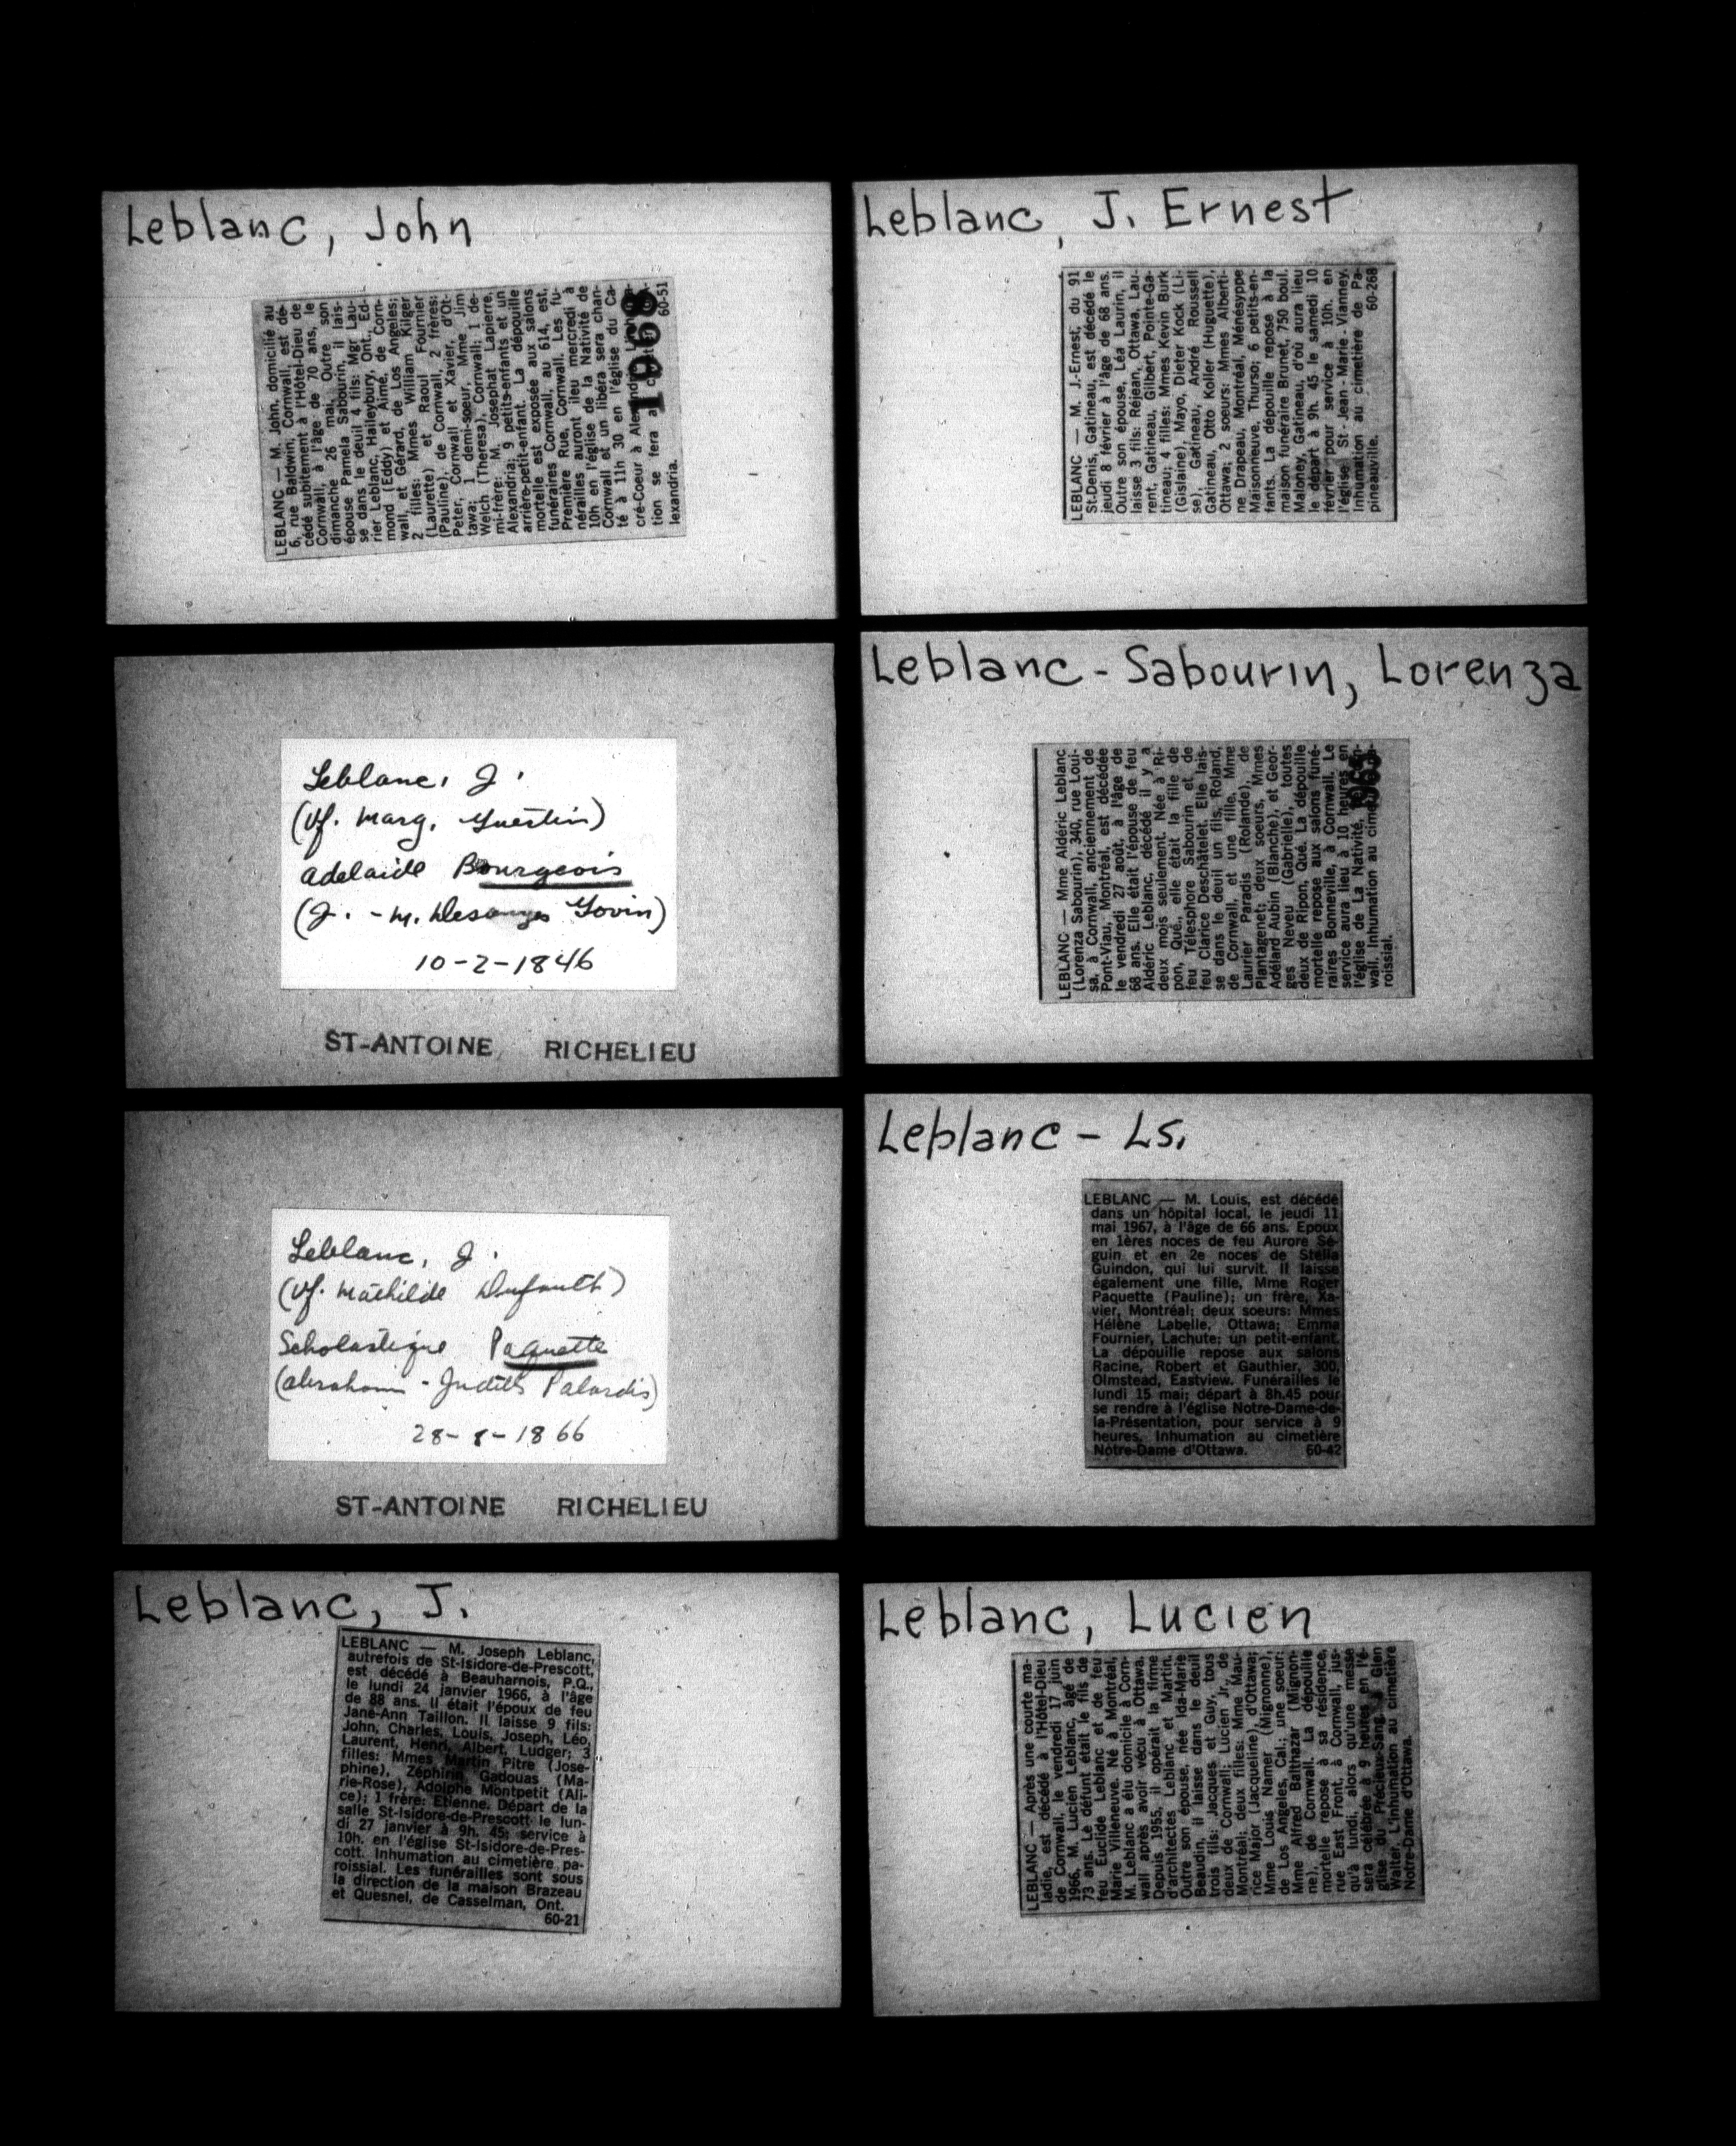 Leblanc, John
LEBLANC — M. John, domicilié au
6, rue Baldwin, Cornwall, est dé-
cédé subitement à l'Hôtel-Dieu de
Cornwall, à l'âge de 70 ans, le
dimanche 26 mai. Outre son
épouse Pamela Sabourin, il lais-
se dans le deuil 4 fils: Mgr Lau-
rier Leblanc, Haileybury, Ont., Ed-
mond (Eddy) et Aimé, de Corn-
wall, et Gérard, de Los Angeles;
2 filles: Mmes William Kilger
(Laurette) et Raoul Fournier
(Pauline), de Cornwall, 2 frères:
Peter, Cornwall et Xavier, d'Ot-
tawa; 1 demi-soeur, Mme Jim
Welch (Theresa), Cornwall; 1 de-
mi-frère: M. Josephat Lapierre,
Alexandria; 9 petits-enfants et un
arrière-petit-enfant. La dépouille
mortelle est exposée aux salons
funéraires Cornwall, au 614, est,
Première Rue, Cornwall. Les fu-
nérailles auront lieu mercredi à
10h en l'église de la Nativité de
Cornwall et un libéra sera chan-
té à 11h 30 en l'église du Ca-
cré-Coeur à
tion se fera
lexandria. 60-51
1968
Leblanc, J. Ernest
LEBLANC — M. J.-Ernest, du 91
St-Denis, Gatineau, est décédé le
jeudi 8 février à l'âge de 68 ans.
Outre son épouse, Léa Laurin, il
laisse 3 fils: Réjean, Ottawa, Lau-
rent, Gatineau, Gilbert, Pointe-Ga-
tineau; 4 filles: Mmes Kevin Burk
(Gislaine), Mayo, Dieter Kock (Li-
se), Gatineau, André Roussell
Gatineau, Otto Koller (Huguette),
Ottawa; 2 soeurs: Mmes Alberti-
ne Drapeau, Montréal, Ménésyppe
Maisonneuve, Thurso; 6 petits-en-
fants. La dépouille repose à la
maison funéraire Brunet, 750 boul.
Maloney, Gatineau, d'où aura lieu
le départ à 9h. 45 le samedi 10
février pour service à 10h. en
l'église St - Jean - Marie - Vianney.
Inhumation au cimetière de Pa-
pineauville. 60-268
Leblanc, J.
(Vf. Marg. Guertin)
Adelaide Bourgeois
(J. - M. Desanges Govin)
10-2-1846
ST-ANTOINE RICHELIEU
Leblanc-Sabourin, Lorenza
LEBLANC — Mme Aldéric Leblanc
(Lorenza Sabourin), 340, rue Loui-
sa, à Cornwall, anciennement de
Pont-Viau, Montréal, est décédée
le vendredi 27 août, à l'âge de
68 ans. Elle était l'épouse de feu
Aldéric Leblanc, décédé il y a
deux mois seulement. Née à Ri-
pon, Qué., elle était la fille de
feu Télesphore Sabourin et de
feu Clarice Deschâtelet. Elle lais-
se dans le deuil un fils, Roland,
de Cornwall, et une fille, Mme
Laurier Paradis (Rolande), de
Plantagenet; deux soeurs, Mmes
Adélard Aubin (Blanche), et Geor-
ges Neveu (Gabrielle), toutes
deux de Ripon, Qué. La dépouille
mortelle repose aux salons funé-
raires Bonneville, à Cornwall. Le
service aura lieu à 10 heures en
l'église de La Nativité,
wall. Inhumation au
roissial.
Leblanc, J.
(Vf. Mathilde Dufault)
Scholastique Paquette
(Abraham - Judith Palardis)
28-8-1866
ST-ANTOINE RICHELIEU
Leblanc - Ls.
LEBLANC — M. Louis, est décédé
dans un hôpital local, le jeudi 11
mai 1967, à l'âge de 66 ans. Epoux
en 1ères noces de feu Aurore Sé-
guin et en 2e noces de Stella
Guindon, qui lui survit. Il laisse
également une fille, Mme Roger
Paquette (Pauline); un frère, Xa-
vier, Montréal; deux soeurs: Mmes
Hélène Labelle, Ottawa; Emma
Fournier, Lachute; un petit-enfant.
La dépouille repose aux salons
Racine, Robert et Gauthier, 300,
Olmstead, Eastview. Funérailles le
lundi 15 mai; départ à 8h.45 pour
se rendre à l'église Notre-Dame-de-
la-Présentation, pour service à 9
heures. Inhumation au cimetière
Notre-Dame d'Ottawa. 60-42
Leblanc, J.
LEBLANC — M. Joseph Leblanc,
autrefois de St-Isidore-de-Prescott,
est décédé à Beauharnois, P.Q.,
le lundi 24 janvier 1966, à l'âge
de 88 ans. Il était l'époux de feu
Jane-Ann Taillon. Il laisse 9 fils:
John, Charles, Louis, Joseph, Léo,
Laurent, Henri, Albert, Ludger; 3
filles: Mmes Martin Pitre (Jose-
phine), Zéphirin Gadouas (Ma-
rie-Rose), Adolphe Montpetit (Ali-
ce); 1 frère: Etienne. Départ de la
salle St-Isidore-de-Prescott le lun-
di 27 janvier à 9h. 45; service à
10h. en l'église St-Isidore-de-Pres-
cott. Inhumation au cimetière pa-
roissial. Les funérailles sont sous
la direction de la maison Brazeau
et Quesnel, de Casselman, Ont.
60-21
Leblanc, Lucien
LEBLANC — Après une courte ma-
ladie, est décédé à l'Hôtel-Dieu
de Cornwall, le vendredi 17 juin
1966, M. Lucien Leblanc, âgé de
73 ans. Le défunt était le fils de
feu Euclide Leblanc et de feu
Marie Villeneuve. Né à Montréal,
M. Leblanc a élu domicile à Corn-
wall après avoir vécu à Ottawa.
Depuis 1955, il opérait la firme
d'architectes Leblanc et Martin.
Outre son épouse, née Ida-Marie
Beaudin, il laisse dans le deuil
trois fils: Jacques et Guy, tous
deux de Cornwall; Lucien Jr, de
Montréal; deux filles: Mme Mau-
rice Major (Jacqueline), d'Ottawa;
Mme Louis Namer (Mignonne),
de Los Angeles, Cal.; une soeur:
Mme Alfred Balthazar (Mignon-
ne), de Cornwall. La dépouille
mortelle repose à sa résidence,
rue East Front, à Cornwall, jus-
qu'à lundi, alors qu'une messe
sera célébrée à 9 heures en l'é-
glise du Précieux-Sang, à Glen
Walter. L'inhumation au cimetière
Notre-Dame d'Ottawa.